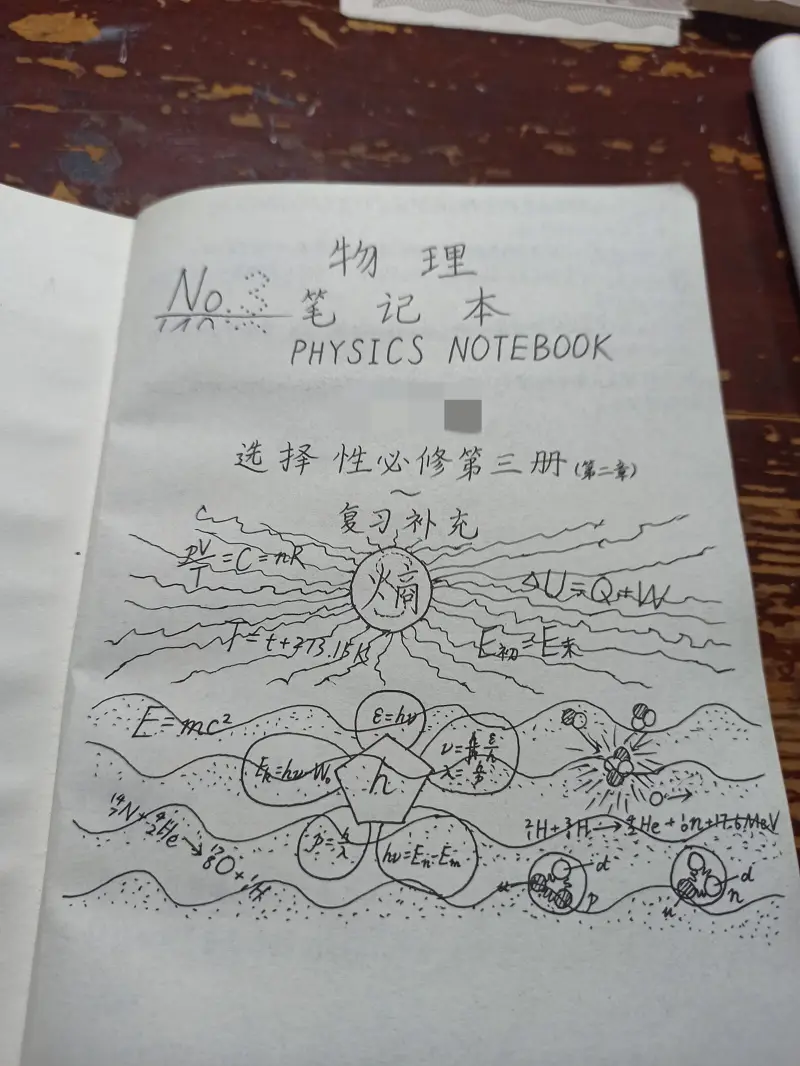 物理
No.3
笔记本
PHYSICS NOTEBOOK
选择性必修第三册(第二章)
~
复习补充
C
PV/T=C=nR
熵
ΔU=Q+W
T=t+273.15K
E初=E末
E=mc²
ε=hν
Eₖ=hν-W₀
h
ν=ε/h
λ=h/p
p=h/λ
hν=Eₙ-Eₘ
¹⁴₇N+⁴₂He→¹⁷₈O+¹₁H
²₁H+³₁H→⁴₂He+¹₀n+17.6MeV
u
d
p
u
d
n